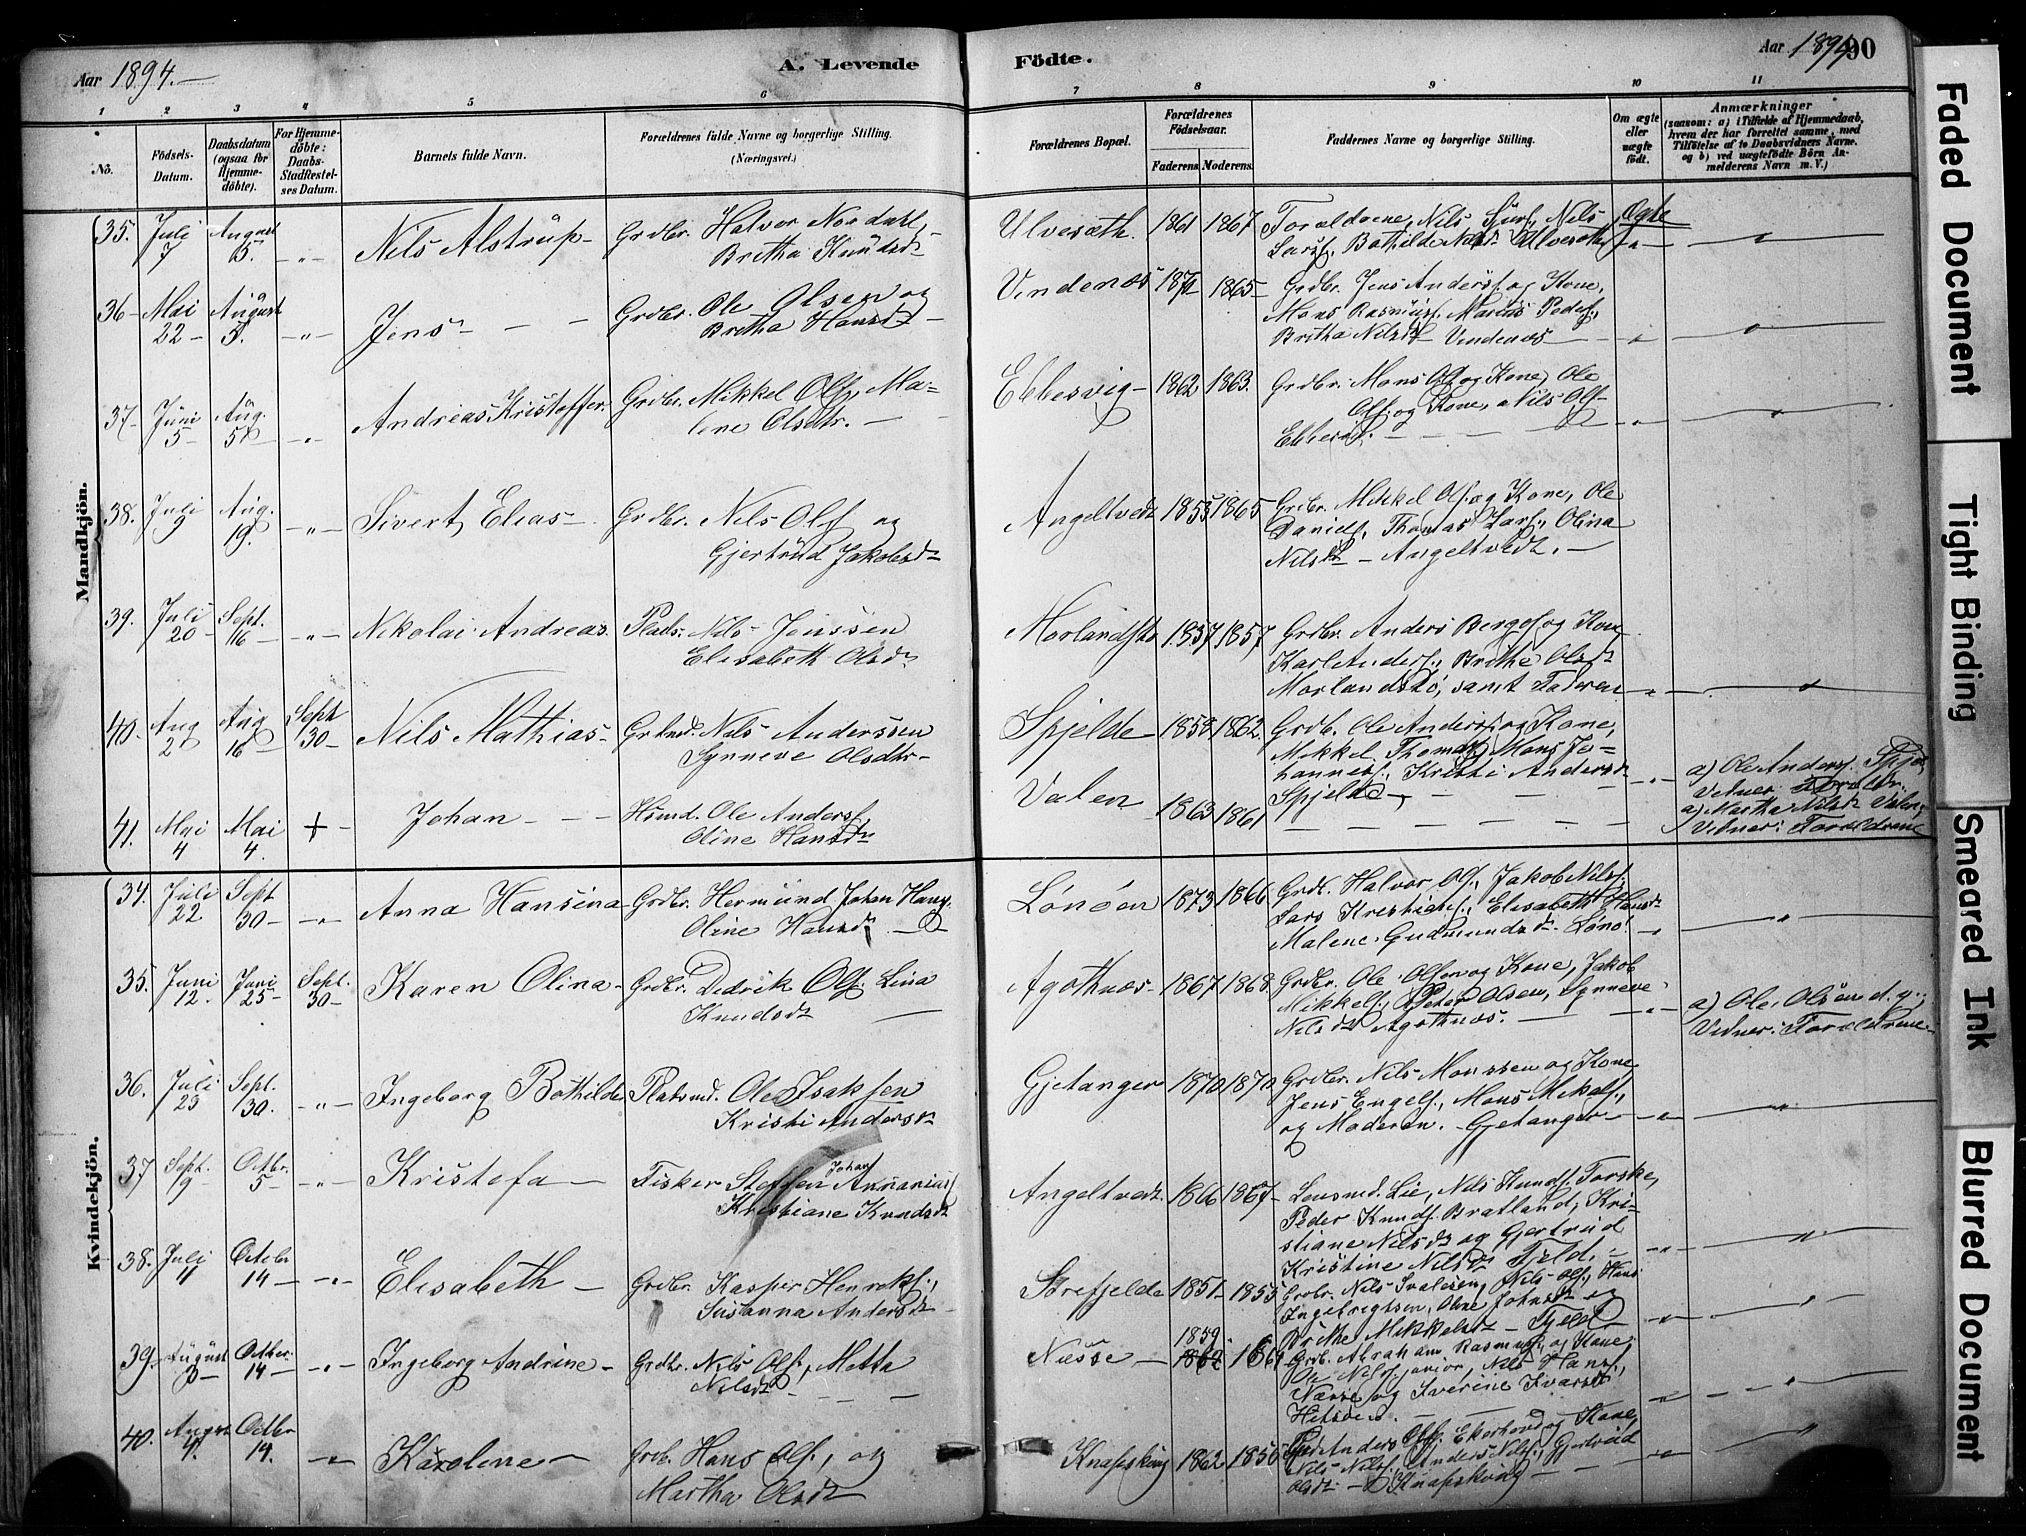 Aar 1894. A. Levende
Födte. Aar 1894 90
1 2 3 4 5 6 7 8 9 10 11
No. Födsels-Datum. Daabsdatum (ogsaa for Hjemmedöbte). For Hjemmedöbte: Daabs-Stadfæstelses Datum. Barnets fulde Navn. Forældrenes fulde Navne og borgerlige Stilling. (Næringsvei.)
Forældrenes Bopæl. Forældrenes Födselsaar. Faderens Moderens. Faddernes Navne og borgerlige Stilling. Om ægte eller uægte födt. Anmærkninger
(saasom: a) i Tilfælde af Hjemmedaab, hvem der har forrettet samme, med Tilföielse af to Daabsvidners Navne. og b) ved uægtefödte Börn Anmelderens Navn m. V.)
Mandkjön.
35. Juli 7 August 5. Nils Alstrup Grdbr. Halvor Nordahl, Britha Knudsdr
Ulvesæth. 1861 1867 Forældrene, Nils Nils Larsf. Bothilde Ulvesæth Ægte
36 Mai 22 August 5. Jens Grdbr. Ole Olsen og Britha Hansdr
Vindenæs 1865 Grdbr. Jens Andersf. og Kone,
Mons Rasmusf. Marius Peders.,
Britha Nilsdr Vindenæs
37 Juni 5 Aug. 5 Andreas Kristoffer. Grdbr. Mikkel Olsf, Malene Olsdtr.
Ebbesvig 1862 1863. Grdbr. Mons Olsf og Kone, Ole
Olsf. og Kone, Nils Olsf
38. Juli 9 Aug. 19. Sivert Elias Grdbr. Nils Olsf og Gjertrud Jakobsdr
Angeltvedt 1855 1865 Grdbr. Mikkel Olsf. og Kone, Ole
Danielsf, Thomas Larsf., Olina
Nilsdr Angeltvedt.
39. Juli 20 Sept. 16 Nikolai Andreas. Plads. Nils Jonssen Elisabeth Olsdr
Morlandstø 1837 1857 Grdbr. Anders Bergesf og Kone
Karl Andersf., Britha Olsdr
Morlandstø, samt Faderen
40. Aug 2 Aug 16 Sept 30 Nils Mathias Grdmd. Nils Anderssen Synneve Olsdtr
Spjelde 1858 1862. Grdb. Ole Andersf. og Kone,
Mikkel Thomasf, Mons Johannesf., Kristi Andersdr
Spjelde a) Ole Andersf. Spjelde, Vidner: Forældrene
41. Mai 4 Mai 4. + Johan Husmd. Ole Andersf, Oline Hansdr
Valen 1863 1861 a) Martha Nilsdr Valen, Vidner: Forældrene
Kvindekjön.
34. Juli 22 Sept 30 Anna Hansina Grdbr. Hermund Johan Hansf. Oline Hansdr
Lönöen 1873 1866 Grdb. Halvor Olsf., Jakob Nilsf.
Lars Kristians., Elisabeth Hansdr
Malene Gudmundsdr. Lönö.
35. Juni 12. Juni 25 Sept. 30 Karen Olina Grdbr. Didrik Olsf. Lina Knudsdr
Agothnæs 1867 1868. Grdbr. Ole Olsen og Kone, Jakob
Mikkelsf., Peter Olsen, Synneve
Nilsdr Agothnæs. a) Ole Olsen d. y., Vidner: Forældrene
36. Juli 23 Sept. 30. Ingeborg Bothilde Pladsmd. Ole Isaksen Kristi Andersdr
Gjetanger 1870 1870 Grdbr. Nils Monssen og Kone
Jens Engelsf., Mons Mikalsf.,
og Moderen. Gjetanger
37 Sept. 9 Octbr. 5 Kristofa Fisker Steffen Johan Annaniasf Kristiane Knudsdr
Angeltvedt. 1866 1867 Lensmd. Lie, Nils Knudsf. Torske,
Peder Knudsf. Bratland, Kristiane Nilsdr og Gjertrud
Kristine Nilsdr Fjeld.
38. Juli 11 October 14 Elisabeth Grdbr. Kasper Henriksf., Susanna Andersdr
Storefjelde 1851 1855 Grdbr. Nils Nils Olsf., Hans
Ingebrigtsen, Oline Johnsdr og
Brithe Mikkelsdr Fjeld
39. August Octber 14 Ingeborg Andrine Grdbr. Nils Olsf., Metta Nilsdr
Næsse 1859 Grdb. Abraham Rasmusf., og Kone
Ole Nilsf. junior, Nils Hansf.,
Næsse og Severine Ivarsdr
40. August 4. Octbr 14. Karolene Grdb. Hans Olsf., og Martha Olsdr
Knapskog 1862 Anders Olsf. Ekerhovd og Kone,
Nils Nilsf. Anders Nilsf., Gjertrud
Olsdr. Knapskog
Faded Document
Tight Binding
Smeared Ink
Blurred Document